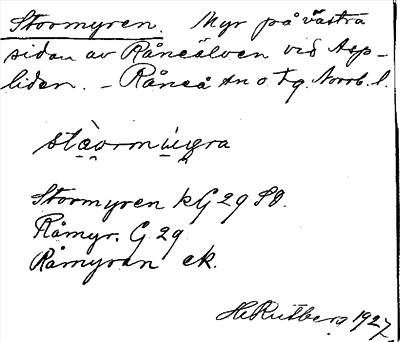 Stormyren. Myr på västra
sidan av Råneälven vid Asp-
liden. – Råneå sn o. tg. Norrb. l.
Stormyren kG 29 SO.
Råmyr. G 29
Råmyran ek.
H. Rutberg 1927.